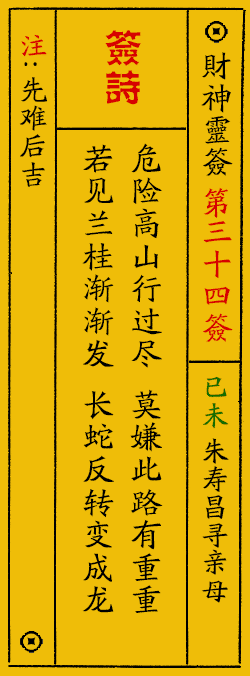 財神靈簽 第三十四簽
己未 朱寿昌寻亲母
簽詩
危险高山行过尽 莫嫌此路有重重
若见兰桂渐渐发 长蛇反转变成龙
注:先难后吉